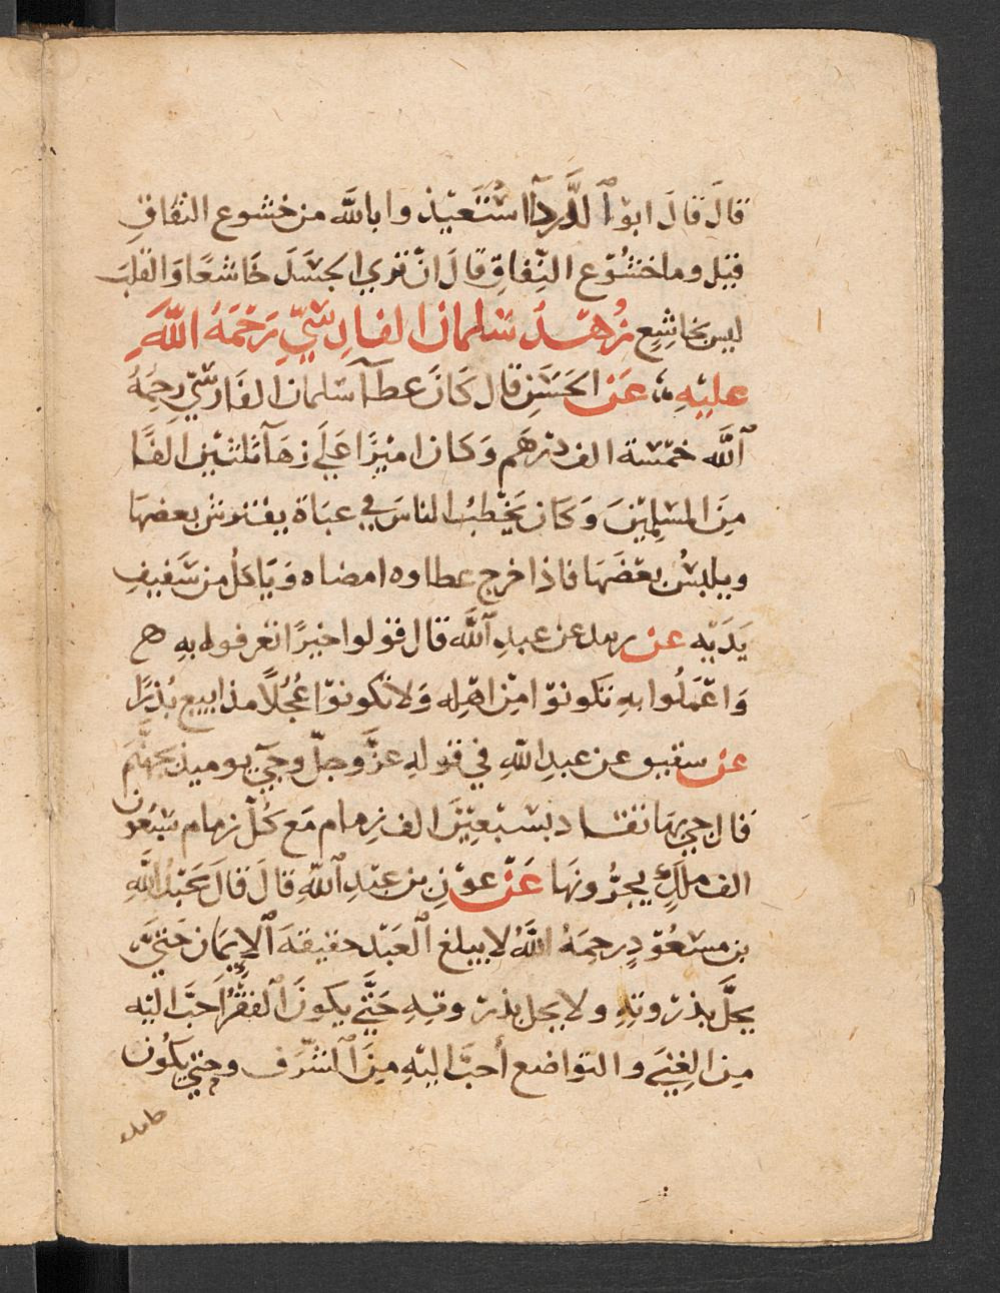 قالَ قالَ ابوْ ٱلدَّردآ اسْتَعيْذوا باللَّه من خشوع النفاقِ
قيْل وما خشُوْع النِّفاقِ قالَ انّ تري الجسَدَ خَاشعًا وَالقلبَ
ليس بخاشِعٍ زُهْدُ سَلمان الفارِسِيِّ رَحْمَةُ اللَّهِ
عليْهِ عَنْ الحَسَنِ قال كَانَ عطآ سَلمان الفَارسيّ رحِمَهُ
ٱللَّه خمْسَة الف درْهَم وَكان اميْرًا عَلَي زهَآ ثلثيْن الفًا
مِنَ المسْلِمِيْنَ وَكَان يَخْطبُ الناسَ في عبَاة يفترش بعضهَا
ويلبسُ بعْضَهَا فاذا خرج عطاوه امضاه وَيَاكلُ من سَفيفِ
يَدَيْه عنْ زيد عن عبدِ ٱللَّه قال قولوا خيْرًا تعْرفوا به
وَاعْمَلُوا بهِ تكونوْا مِنْ اهْلِه وَلا تكونوْا عُجُلًا مذاييع بُذرًا
عنْ سقيق عن عبدِ اللّهِ في قوْلهِ عزَّ وجلّ وجيَ يوميذٍ بجهنَّمَ
قال جي بهَا تقاد بسَبْعِيْنَ الف زِمام مَع كُلّ زمام سَبْعون
الف ملكٍ يجرُّونهَا عَنْ عوْنِ بن عبْدِ ٱللّهِ قالَ قالَ عَبْدُ اللَّهِ
بن مسْعُوْدٍ رحِمَهُ اللَّهُ لا يبلغ ٱلعَبْد حقيقةَ ٱلايمَان حَتيَّ
يحلَّ بذرْوتهِ ولا يحل بذرْوتهِ حَتَّي يكونَ ٱلفقْرُ احَبَّ اليْه
مِن الغِنيَ والتواضع أحبَّ اليْهِ مِنَ ٱلشَّرَفِ وحتي يَكُون
حامده